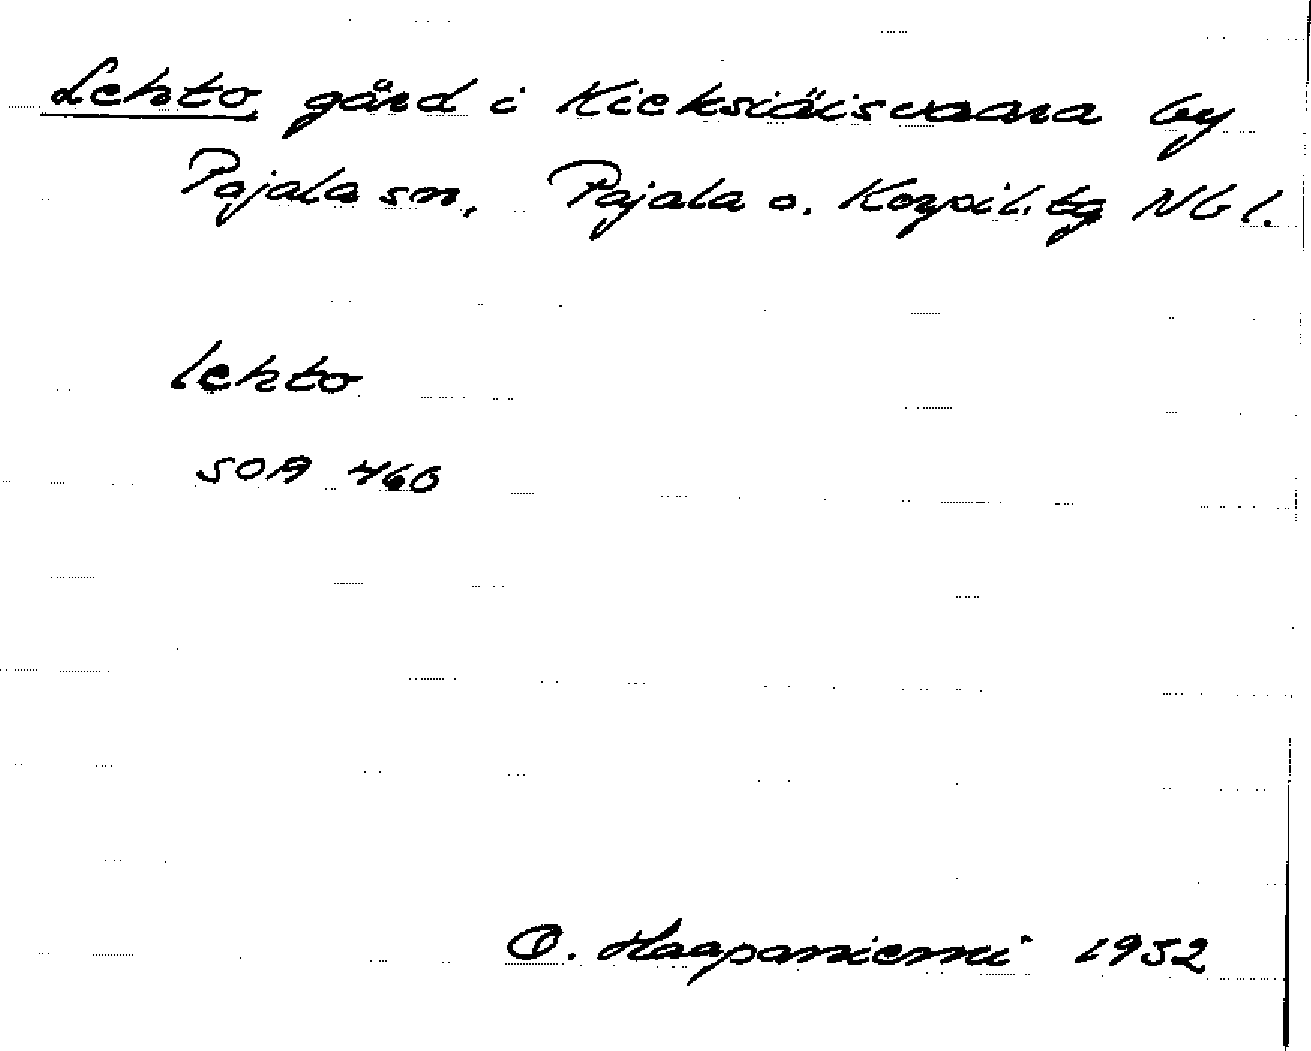 Lehto gård i Kieksiäisvaara by
Pajala sn, Pajala o. Korpil. tg Nb l.
lehto
SOA 460
O. Haapaniemi 1952